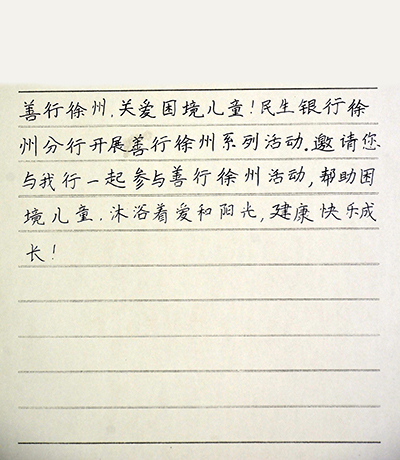 善行徐州.关爱困境儿童!民生银行徐
州分行开展善行徐州系列活动.邀请您
与我行一起参与善行徐州活动,帮助困
境儿童.沐浴着爱和阳光,健康快乐成
长!